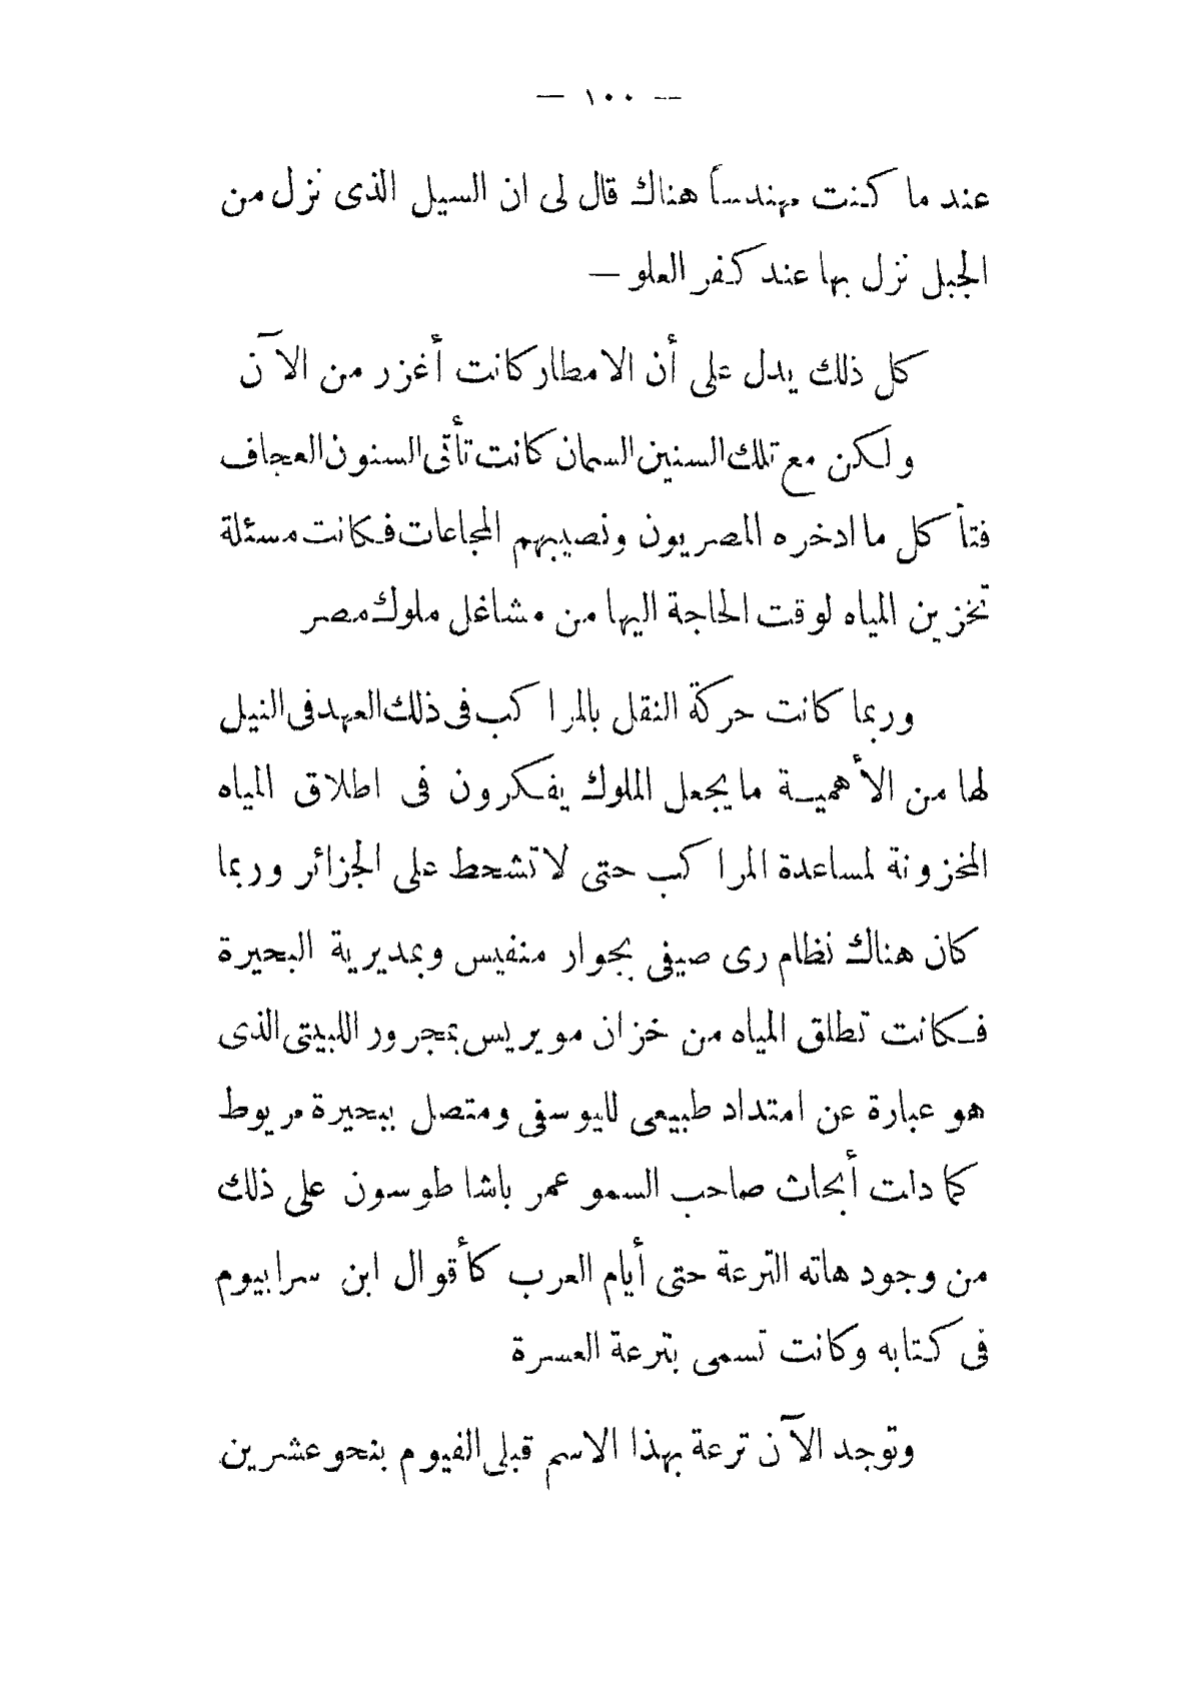 — ١٠٠ —
عند ما كنت مهندساً هناك قال لى ان السيل الذى نزل من
الجبل نزل بها عند كفر العلو —
كل ذلك يدل على أن الامطار كانت أغزر من الآن
ولكن مع تلك السنين السمان كانت تأتى السنون العجاف
فتأكل ما ادخره المصريون ونصيبهم المجاعات فكانت مسئلة
تخزين المياه لوقت الحاجة اليها من مشاغل ملوك مصر
وربما كانت حركة النقل بالمراكب فى ذلك العهد فى النيل
لها من الأهمية ما يجعل الملوك يفكرون فى اطلاق المياه
المخزونة لمساعدة المراكب حتى لا تشحط على الجزائر وربما
كان هناك نظام رى صيفى بجوار منفيس وبمديرية البحيرة
فكانت تطلق المياه من خزان مويريس بمجرور اللبيتى الذى
هو عبارة عن امتداد طبيعى لليوسفى ومتصل ببحيرة مريوط
كما دلت أبحاث صاحب السمو عمر باشا طوسون على ذلك
من وجود هاته الترعة حتى أيام العرب كأقوال ابن سرابيوم
فى كتابه وكانت تسمى بترعة العسرة
وتوجد الآن ترعة بهذا الاسم قبلى الفيوم بنحو عشرين